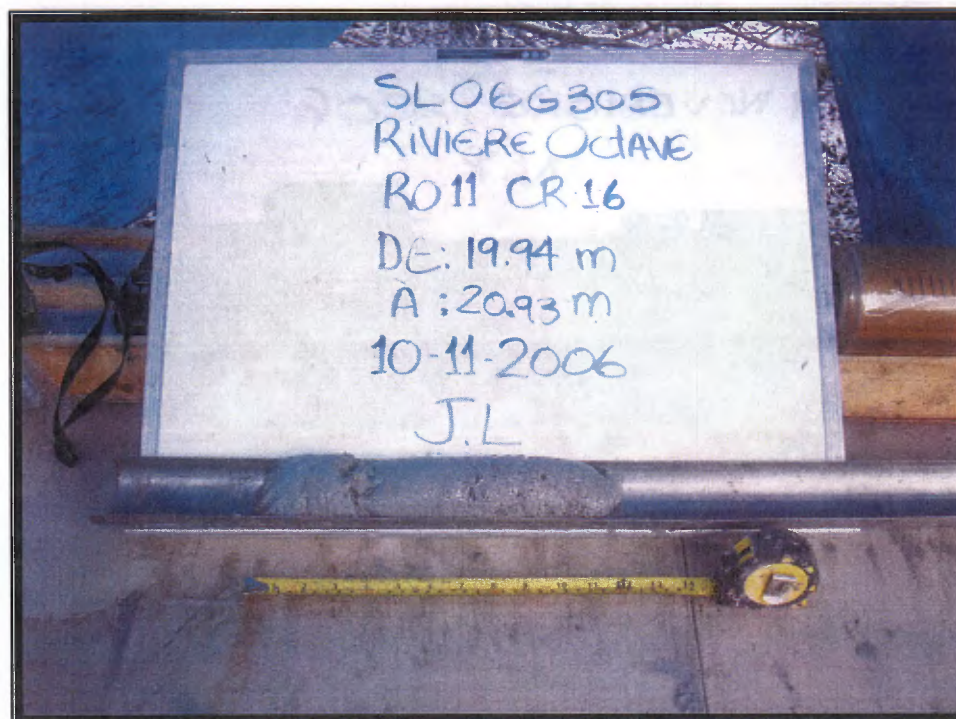 SLOEG305
RIVIERE OCTAVE
RO11 CR-16
DE: 19.94 m
À : 20.93 m
10-11-2006
J.L